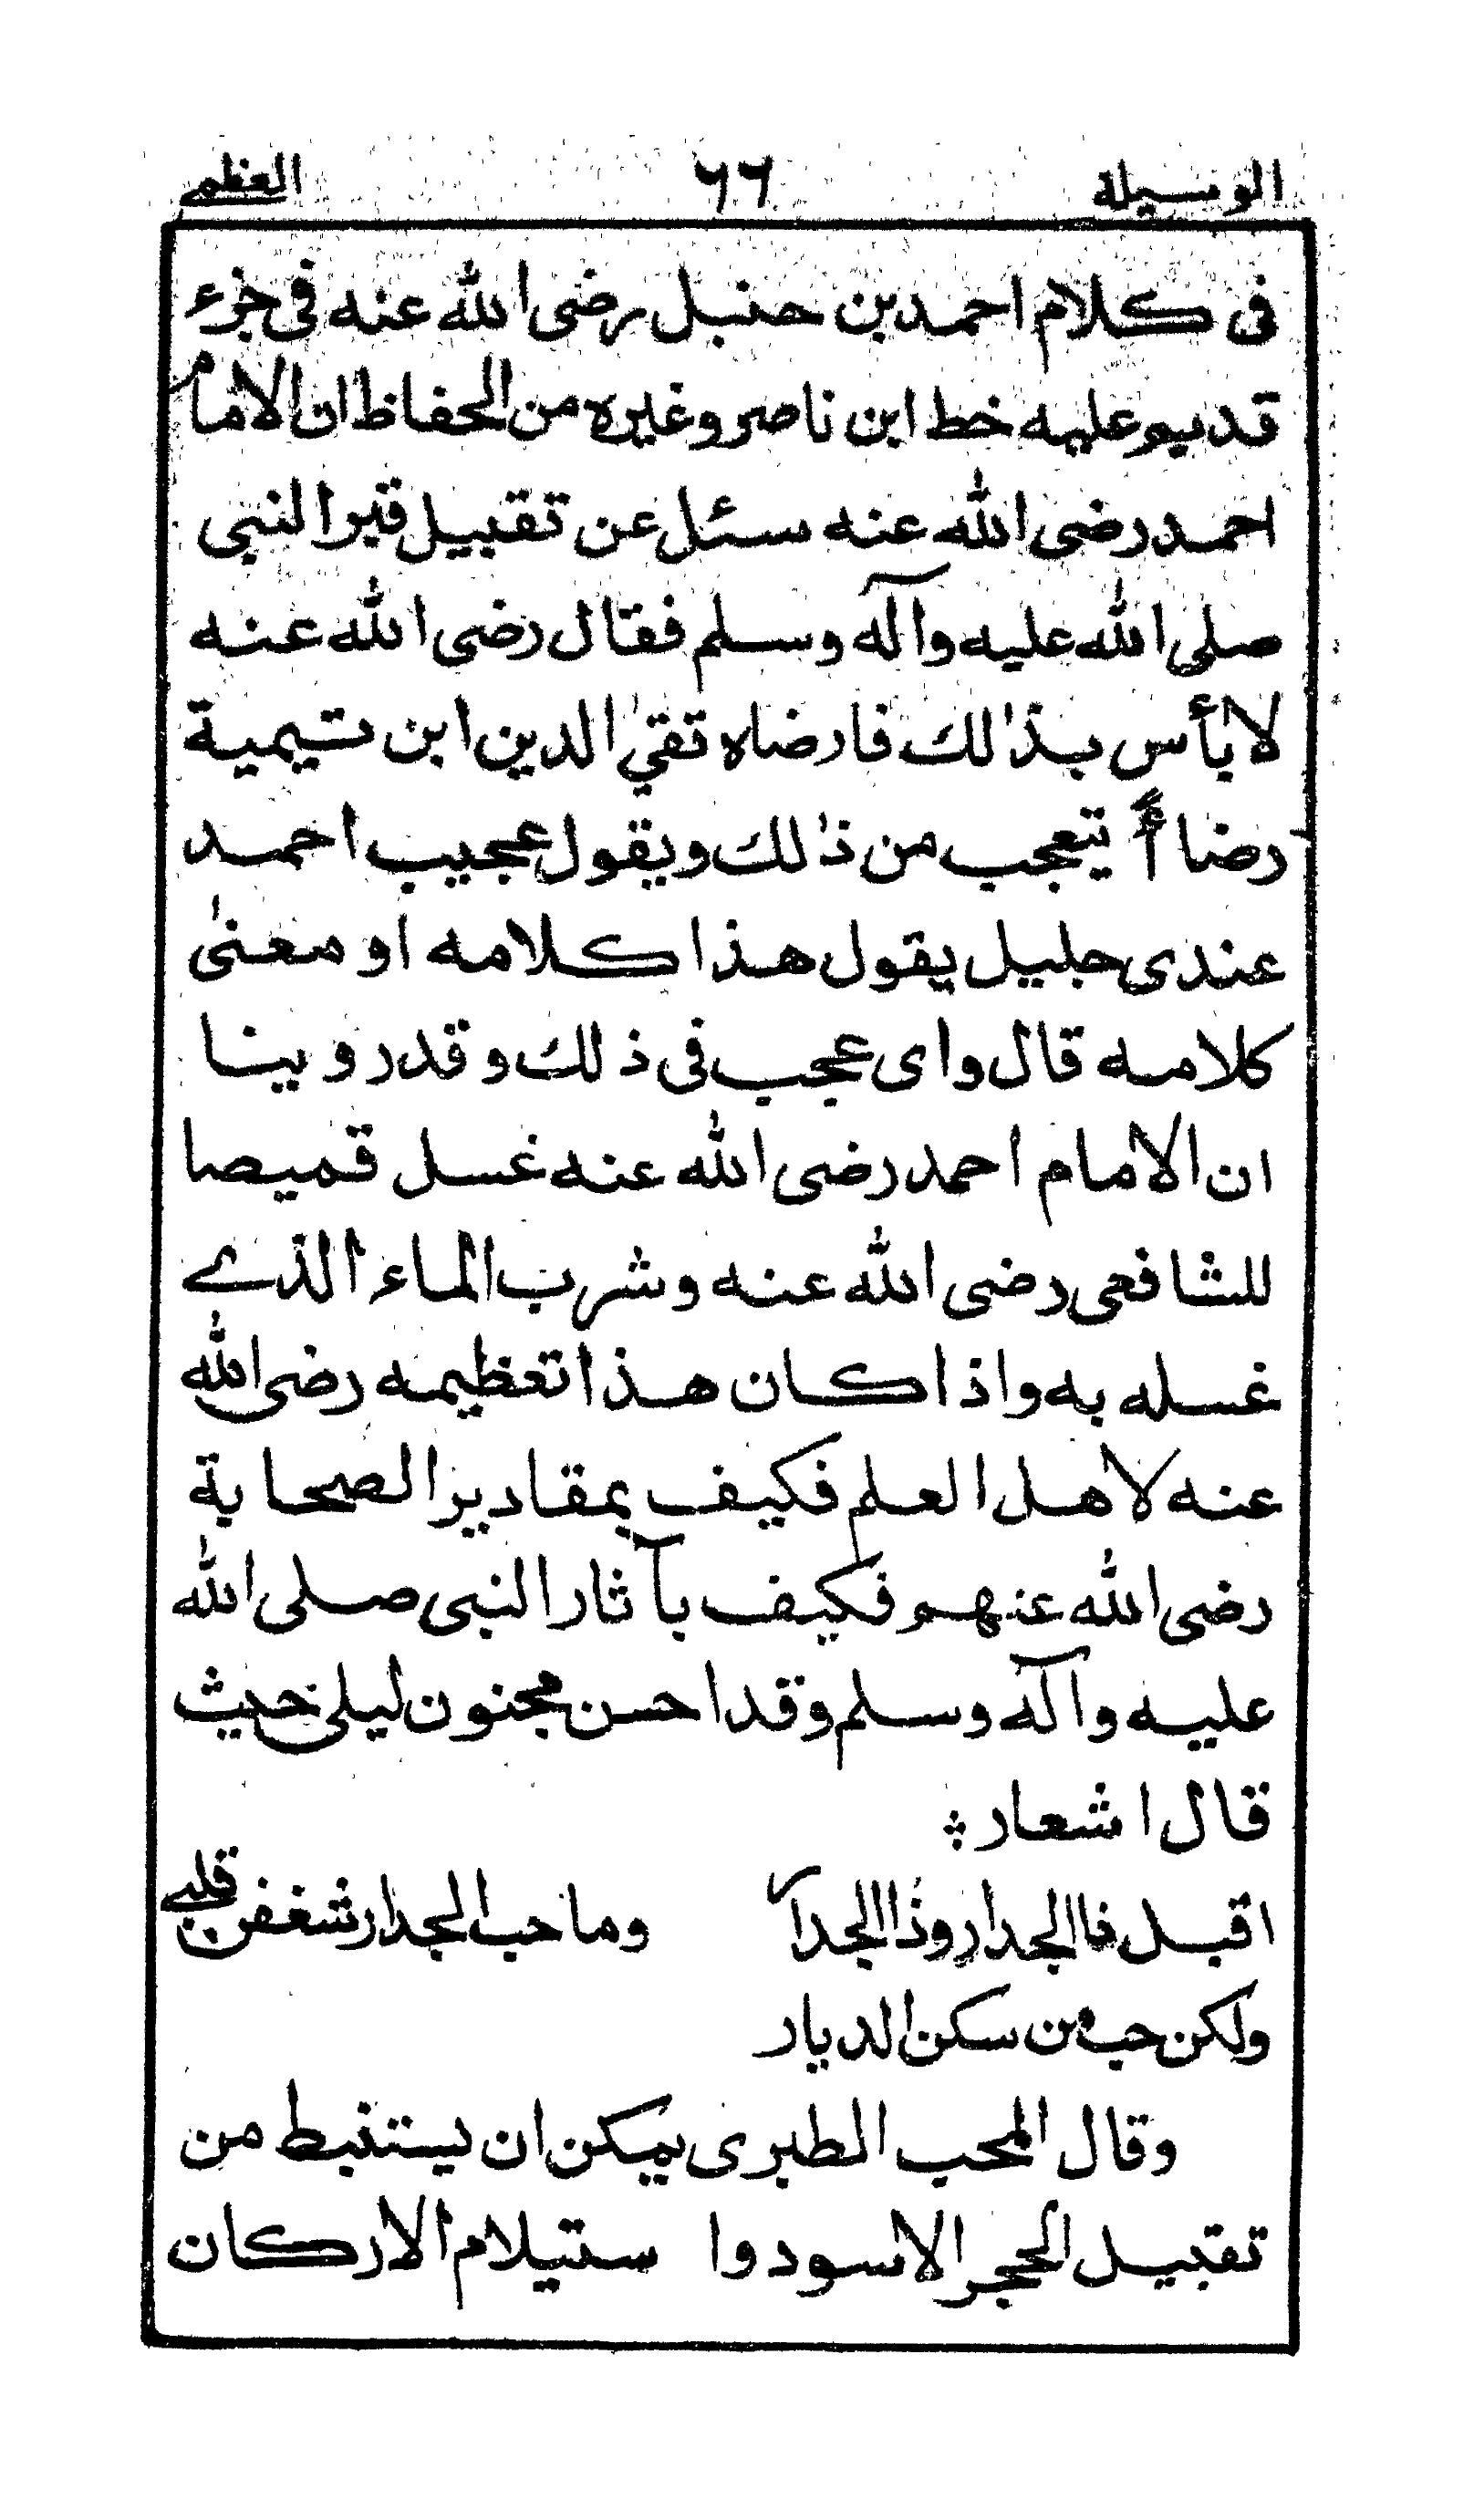 الوسيلة ٦٦ العظمى
فى كلام احمد بن حنبل رضى الله عنه فى جزء
قديم عليه خط ابن ناصر وغيره من الحفاظ ان الامام
احمد رضى الله عنه سئل عن تقبيل قبر النبى
صلى الله عليه وآله وسلم فقال رضى الله عنه
لا بأس بذٰلك فارضاه تقي الدين ابن تيمية
رضاأً يتعجب من ذٰلك ويقول عجيب احمد
عندى جليل يقول هذا كلامه او معنىٰ
كلامه قال واى عجب فى ذلك وقد روينا
ان الامام احمد رضى الله عنه غسل قميصا
للشافعى رضى الله عنه وشرب الماء الذے
غسله به واذا كان هذا تعظيمه رضى الله
عنه لاهل العلم فكيف بمقادير الصحابة
رضى الله عنهم فكيف بآثار النبى صلى الله
عليه وآله وسلم وقد احسن مجنون ليلى حيث
قال اشعار ؞
اقبل ذا الجدار وذا الجدارا وما حب الجدار شغفن قلبے
ولكن حب من سكن الديار
وقال المحب الطبرى يمكن ان يستنبط من
تقبيل الحجر الاسود وا ستيلام الاركان